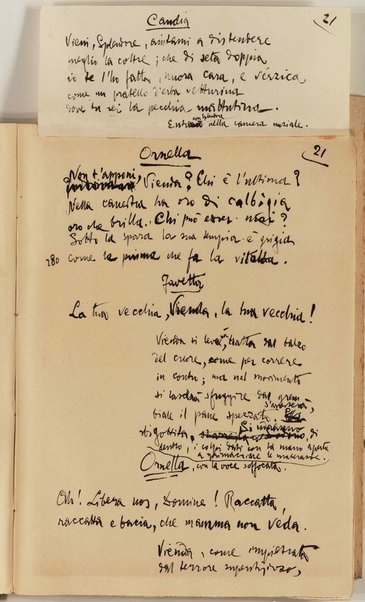 Candia
21
Vieni, Splendore, aiutami a distendere
meglio la coltre; che di seta doppia
io te l'ho fatta, nuora cara, e verzica
come un pratello d'erba vetturina
dove tu sei la pecchia mattutina.
con Splendore
Entra nella camera nuziale.
Ornella
21
Non t'apponi,
Vienda? Chi è l'ultima?
Nella canestra ha oro di calbigia
oro che brilla. Chi può esser mai?
Sotto la sparra la sua tempia è grigia
280 come la piuma che fa la vitalba.
Favetta
La tua vecchia, Vienda, la tua vecchia!
Vienda si leva, tratta dal balzo
del cuore, come per correre
in contro; ma nel movimento
si lascia sfuggire dal grem-
biale il pane spezzato. S'arresta,
sbigottita. Si inarcano di
dentro, i colpi dati con la mano aperta
a rammendare le materasse.
Ornella, con la voce soffocata.
Oh! Libera nos, Domine! Raccatta,
raccatta e bacia, che mamma non veda.
Vienda, come impietrata
dal terrore superstizioso,